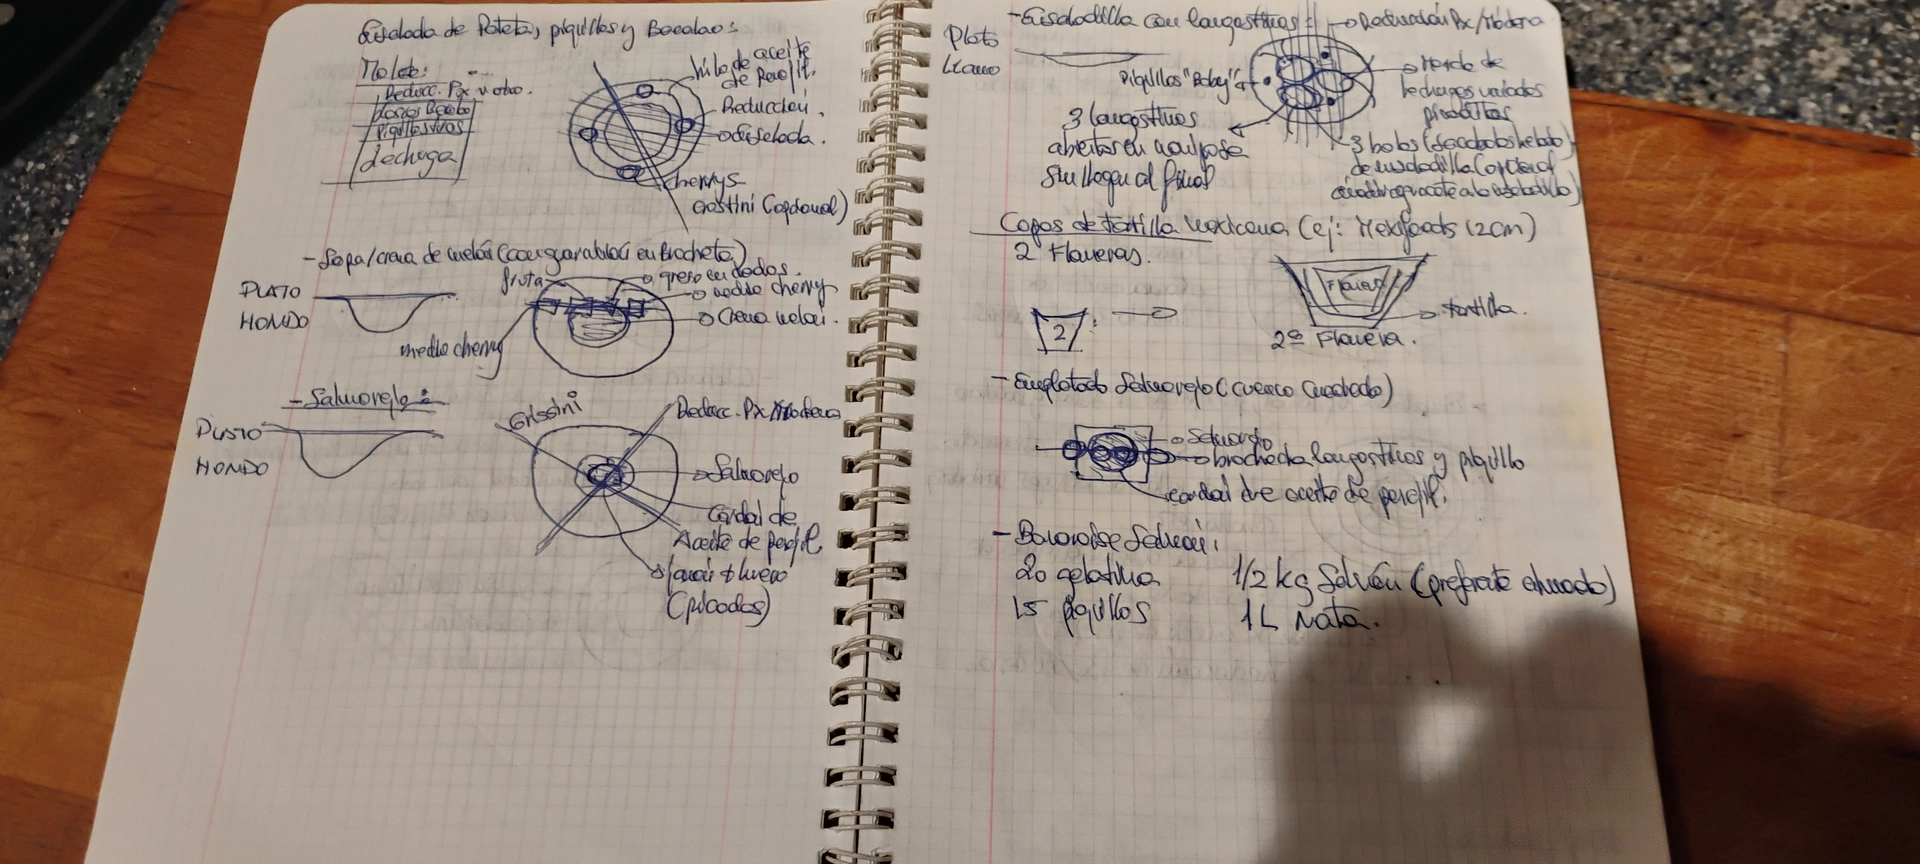 Ensalada de Patata, piquillos y Bacalao:
Molde:
Reducc. Px u otro.
Lomos Bacalao
Piquillos tiras
Lechuga
hilo de aceite
de perejil.
Reducción.
Ensalada.
cherrys
Grostini (opcional)
- Sopa/crema de melón (con guarnición en Brocheta)
PLATO
HONDO
fruta
queso en dados.
medio cherry
Crema melón.
medio cherry
- Salmorejo:
PLATO
HONDO
Grissini
Reducc. Px Módena
Salmorejo
Cordón de
Aceite de perejil
jamón + huevo
(picados)
- Ensaladilla con langostinos:
Plato
Llano
Reducción Px/Módena
Piquillos "Baby"
Mezcla de
lechugas variadas
3 langostinos
abiertos en
sin llegar al final
3 bolas (sacabolas helado)
de ensaladilla (opcional
a la ensaladilla)
Copas de tortilla mexicana (ej: Mexifoods 12cm)
2 Flaneras.
2
Flanera
tortilla.
2ª Flanera.
- Emplatado Salmorejo (cuenco cuadrado)
Salmorejo
brocheta langostinos y piquillo
cordón de aceite de perejil.
- Bavaroise Salmón:
20 gelatina
1/2 kg Salmón (preferente ahumado)
15 piquillos
1L Nata.